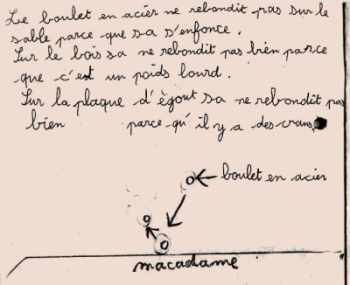 Le boulet en acier ne rebondit pas sur le
sable parce que sa s'enfonce.
Sur le bois sa ne rebondit pas bien parce
que c'est un poids lourd.
Sur la plaque d'ègout sa ne rebondit pas
bien parce qu'il y a des crans
boulet en acier
macadame